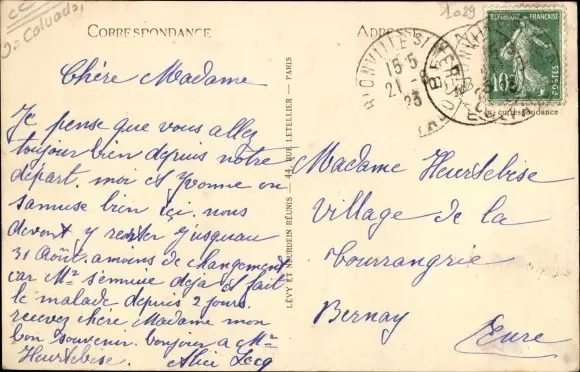 CORRESPONDANCE
ADRESSE
1029
Calvados
RÉPUBLIQUE FRANÇAISE
10c
POSTES
BLONVILLE S/ MER
15·5
21-8
23
correspondance
LÉVY ET NEURDEIN RÉUNIS — 44, RUE LETELLIER — PARIS
Chère Madame
Je pense que vous allez
toujour bien depuis notre
départ. moi et Yvonne on
samuse bien içi. nous
devont y rester jusquau
31 Août. amoins de changement
car Mr s'ennuie déjà et fait
le malade depuis 2 jours.
recevez chère Madame mon
bon souvenir. bonjour a Mr
Heurtebise. Alice
Madame Heurtebise
Village de la
Bourrangrie
Bernay
Eure